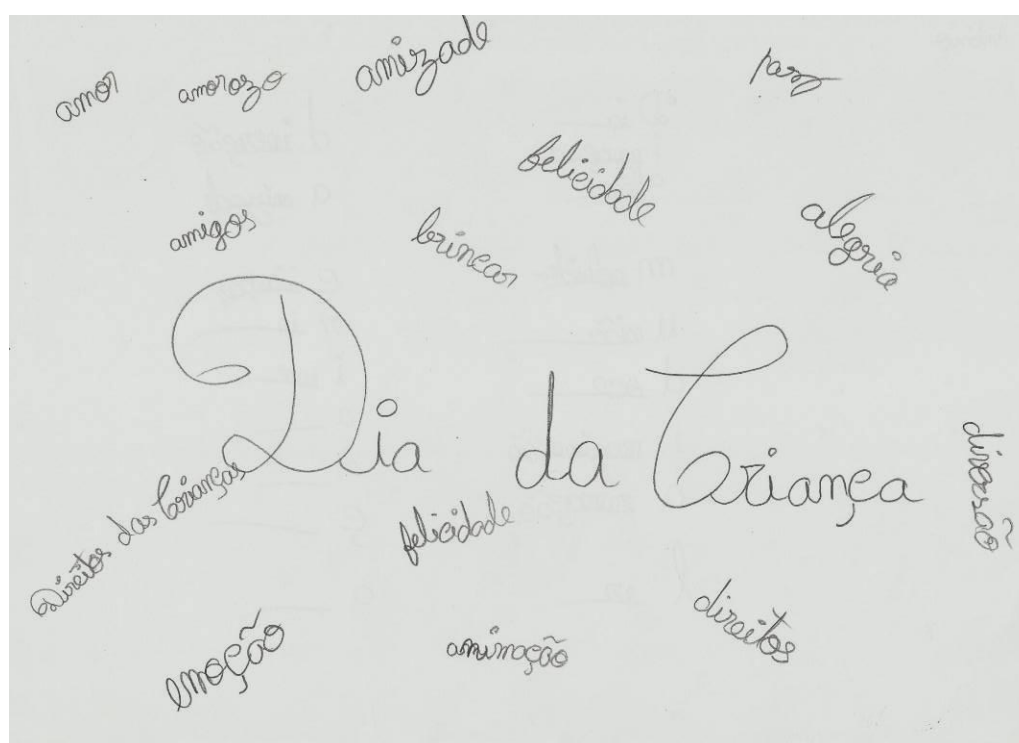 amor
amorozo
amizade
paz
felicidade
amigos
brincar
alegria
Dia da Criança
diversão
Direitos das Crianças
felicidade
direitos
emoção
animação